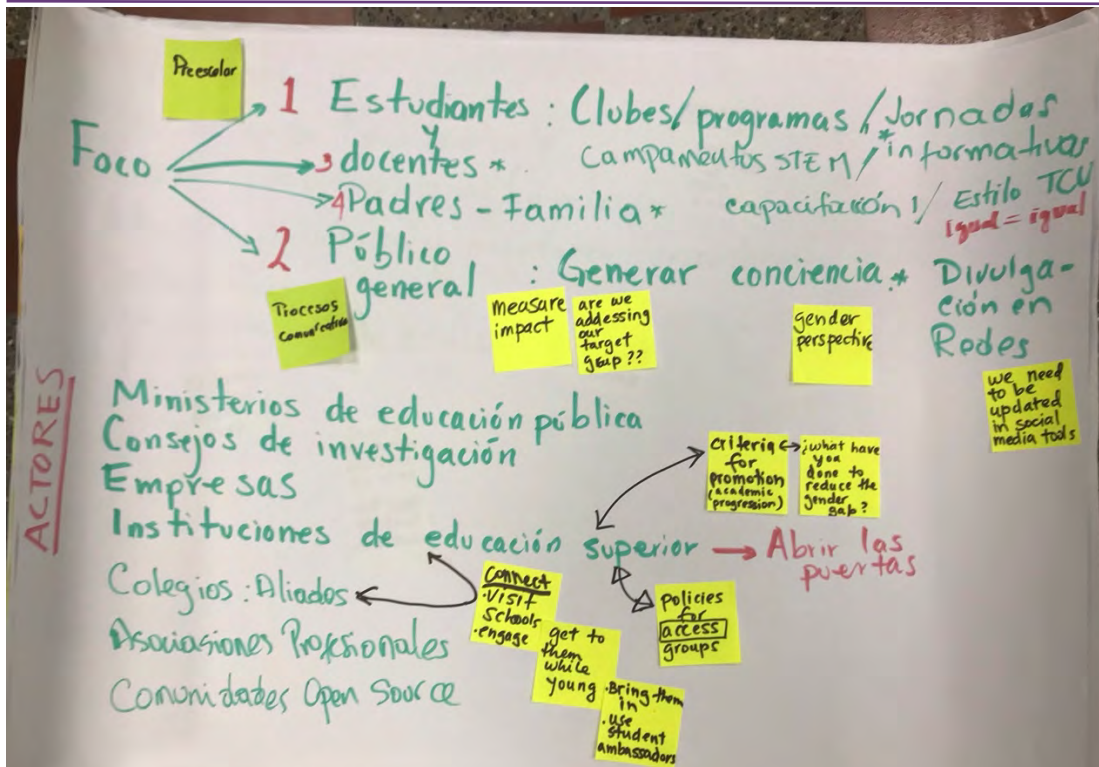 Preescolar
Foco
1 Estudiantes : Clubes/programas/Jornadas
y
3 docentes * Campamentos STEM / * informativas
4 Padres - Familia * capacitación 1/ Estilo TCU
igual = igual
2 Público
general : Generar conciencia * Divulga-
ción en
Redes
Procesos
measure
impact
are we
addressing
our
target
group ??
gender
perspective
we need
to be
updated
in social
media tools
ACTORES
Ministerios de educación pública
Consejos de investigación
Empresas
Instituciones de educación superior → Abrir las
puertas
Colegios : Aliados
Asociasiones Profesionales
Comunidades Open Source
criteria
for
promotion
(academic
progression)
¿what have
you
done to
reduce the
gender
gap?
connect
·visit
schools
·engage
get to
them
while
young
·Bring them
in
·use
student
ambassadors
policies
for
access
groups